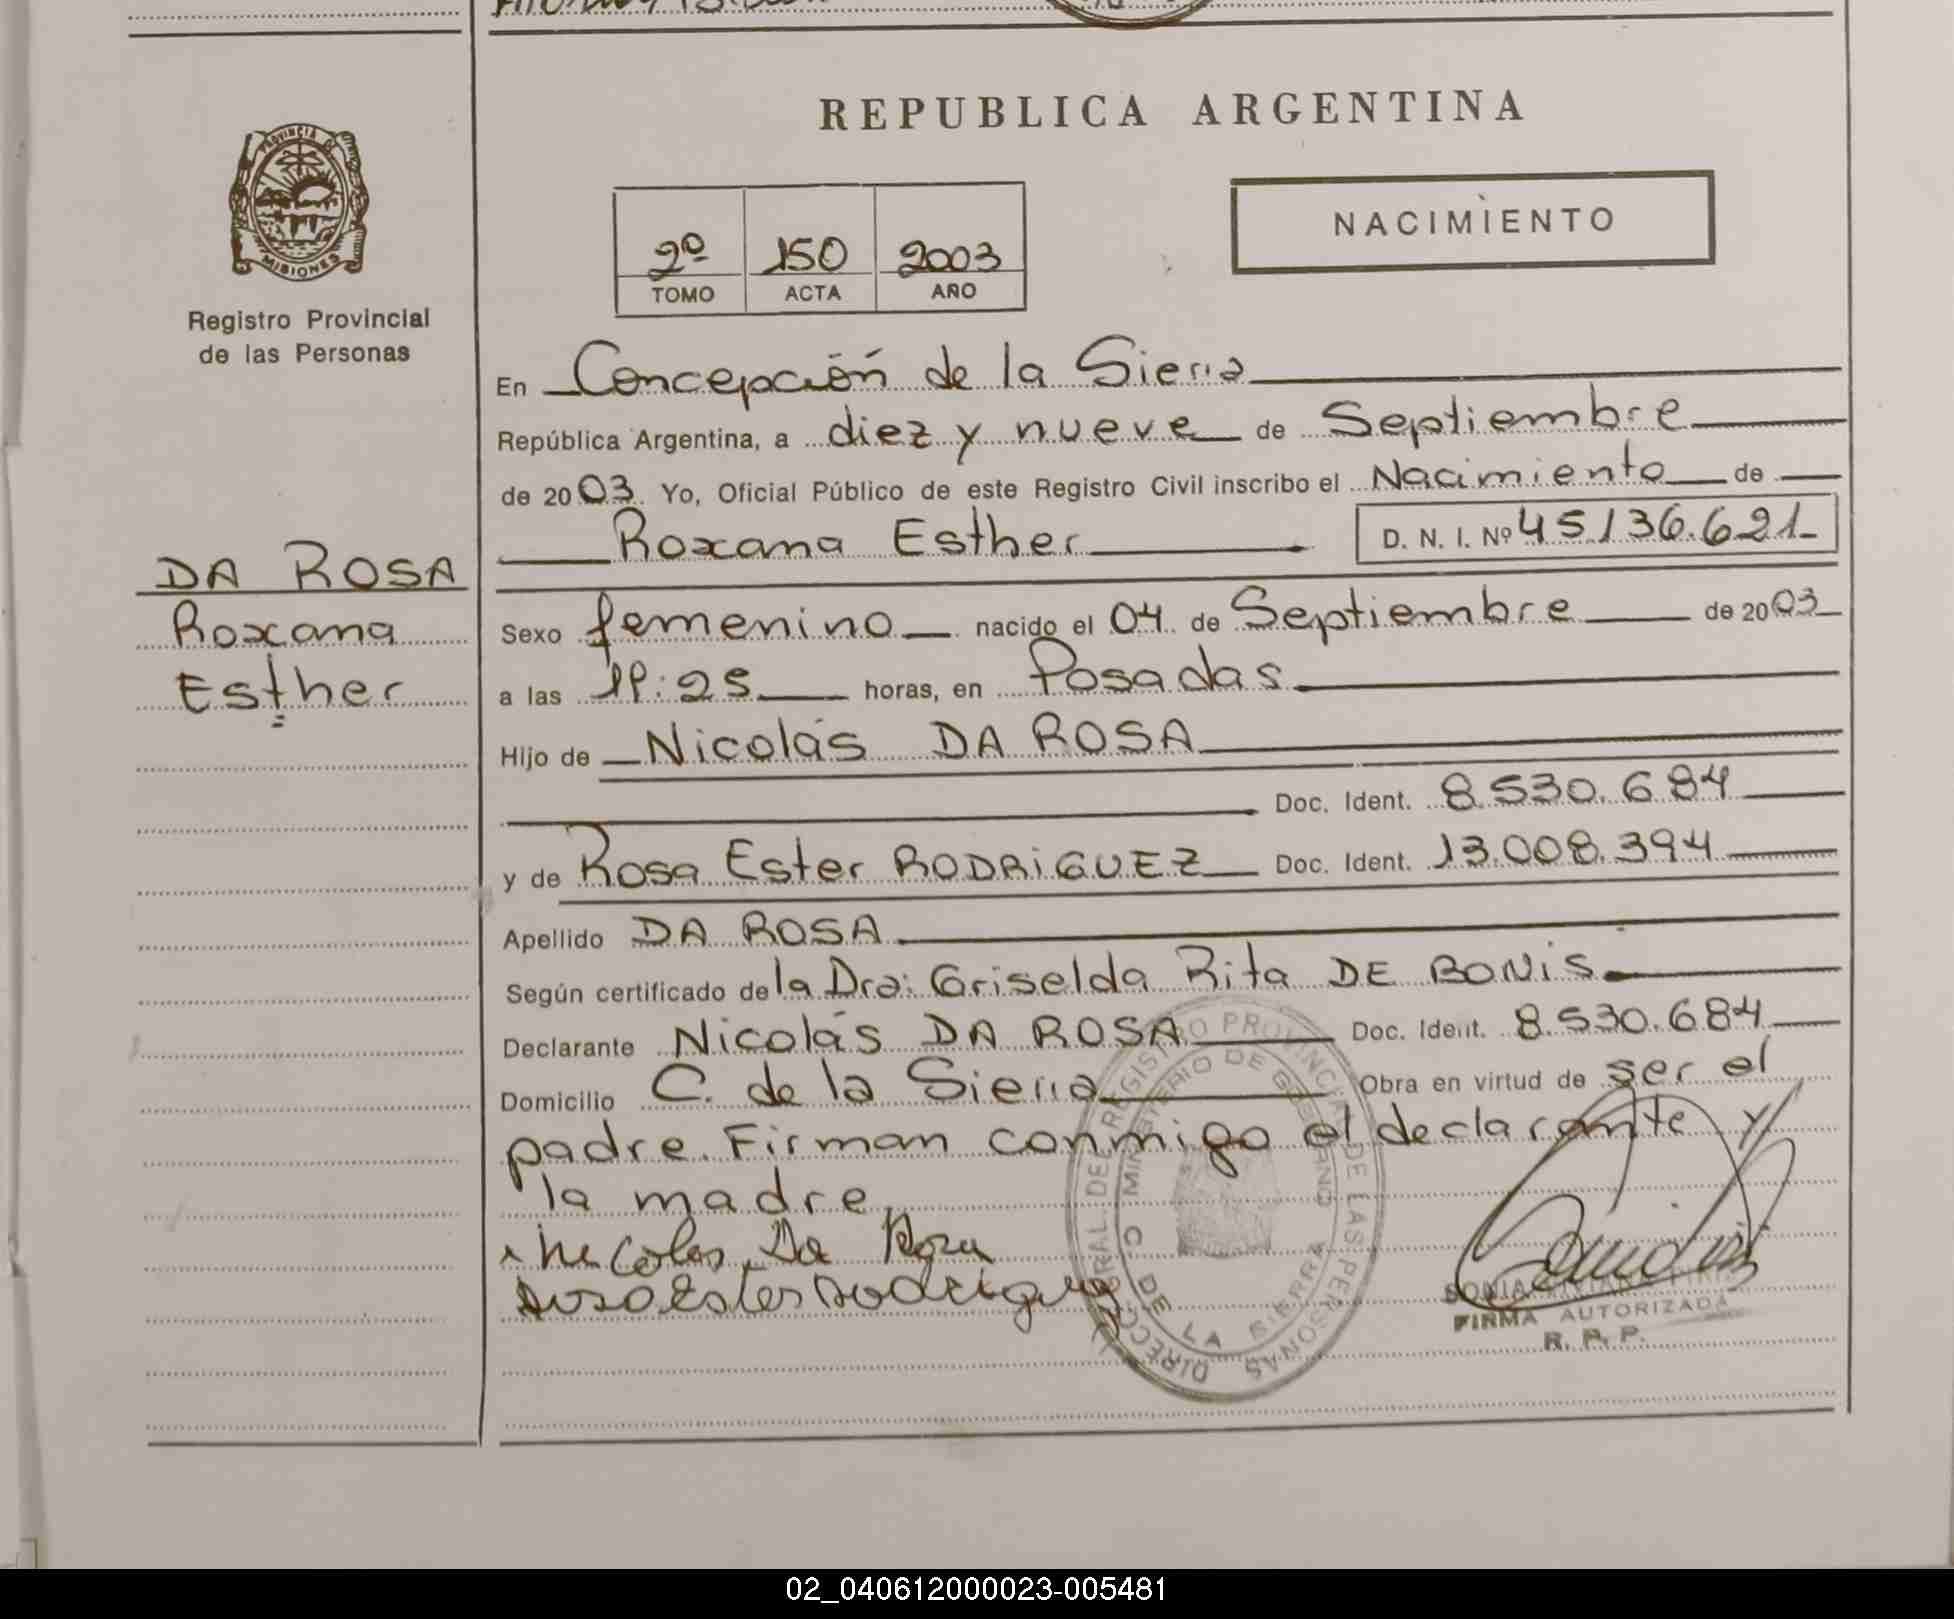 REPUBLICA ARGENTINA
PROVINCIA DE MISIONES
Registro Provincial
de las Personas
NACIMIENTO
2º 150 2003
TOMO ACTA AÑO
DA ROSA
Roxana
Esther
En Concepción de la Sierra
República Argentina, a diez y nueve de Septiembre
de 2003. Yo, Oficial Público de este Registro Civil inscribo el Nacimiento de
Roxana Esther D. N. I. Nº 45136.621
Sexo femenino nacido el 04 de Septiembre de 2003
a las horas, en Posadas
Hijo de Nicolás DA ROSA
Doc. Ident. 8.530.684
y de Rosa Ester RODRIGUEZ Doc. Ident. 13.008.394
Apellido DA ROSA
Según certificado de la Dra: Griselda Rita DE BONIS
Declarante Nicolás DA ROSA Doc. Ident. 8.530.684
Domicilio C. de la Sierra Obra en virtud de ser el
padre. Firman conmigo el declarante y
la madre
Nicolas Da Rosa
Rosa Ester Rodriguez
DIRECC. GRAL. DEL REGISTRO PROVINCIAL DE LAS PERSONAS
MINISTERIO DE GOBIERNO
C. DE LA SIERRA
SONIA
FIRMA AUTORIZADA
R. P. P.
02_040612000023-005481